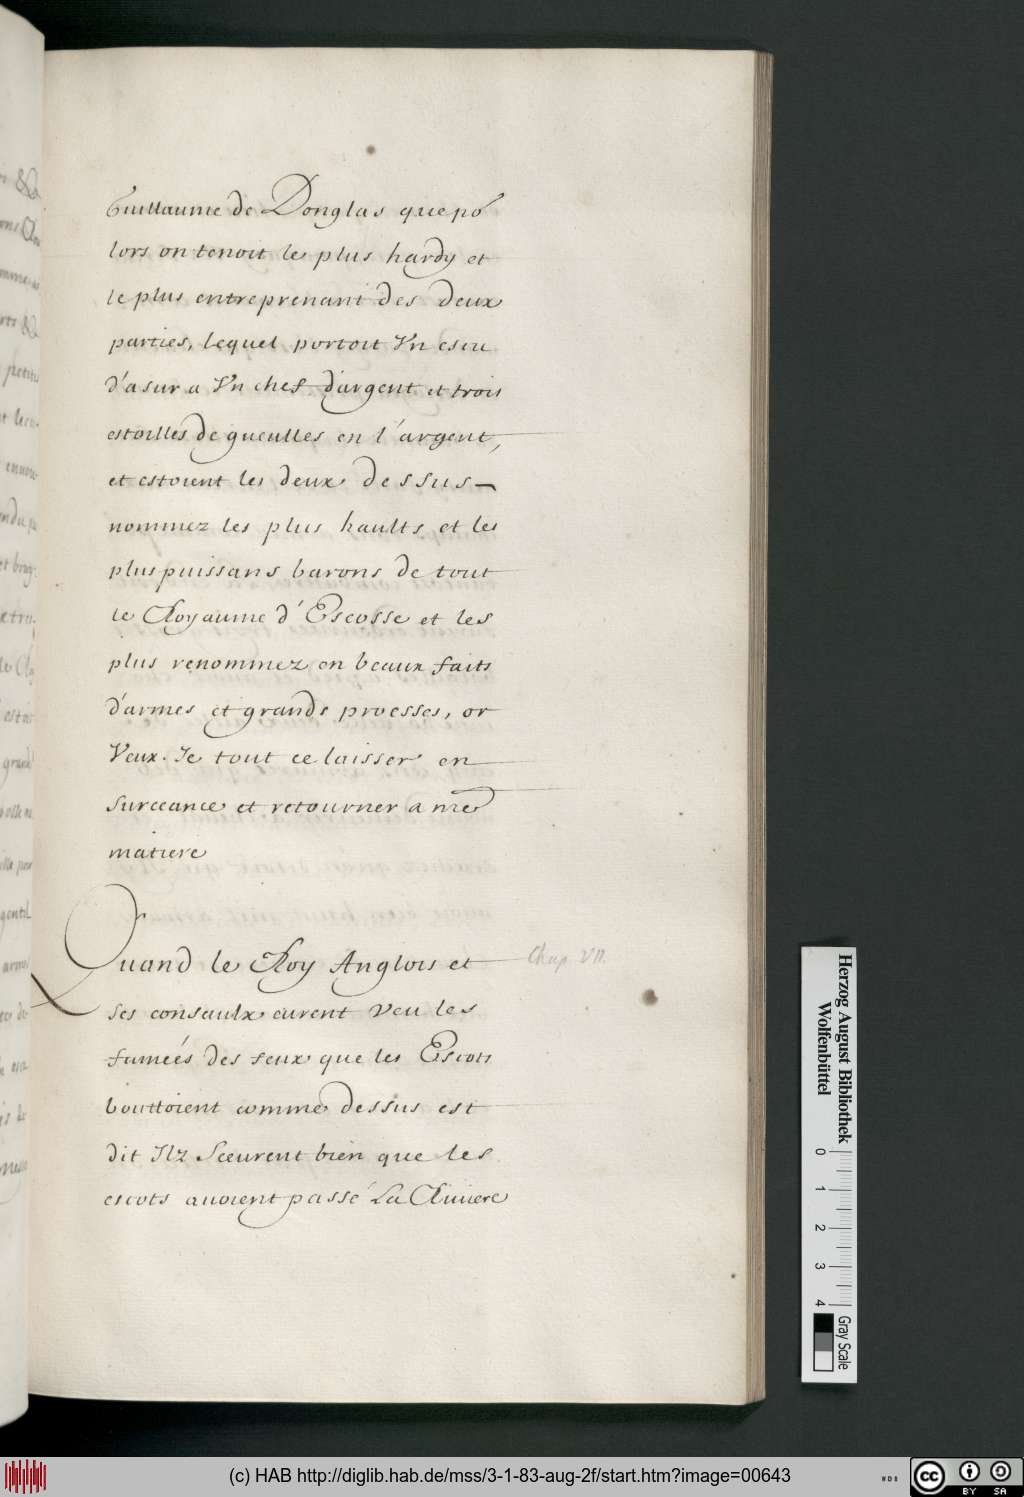 Guillaume de Donglas que po^r
lors on tenoit le plus hardy et
le plus entreprenant des deux
parties, lequel portoit Vn escu
d'asur a Vn chef d'argent et trois
estoilles de gueulles en l'argent,
et estoient les deux dessus-
nommez les plus haults et les
plus puissans barons de tout
le Royaume d'Escosse et les
plus renommez en beaux faits
d'armes et grande proesses, or
Veux. Je tout ce laisser en
surceance et retourner a me
matiere
Quand le Roy Anglois et
ses consaulx eurent veu les
fumeés des feux que les Escots
bouttoient comme dessus est
dit Ilz Sceurent bien que les
escots auoient passé La Riuiere
Chap. VII.
Herzog August Bibliothek
Wolfenbüttel
0 1 2 3 4
Gray Scale
(c) HAB http://diglib.hab.de/mss/3-1-83-aug-2f/start.htm?image=00643
WDB
cc BY SA